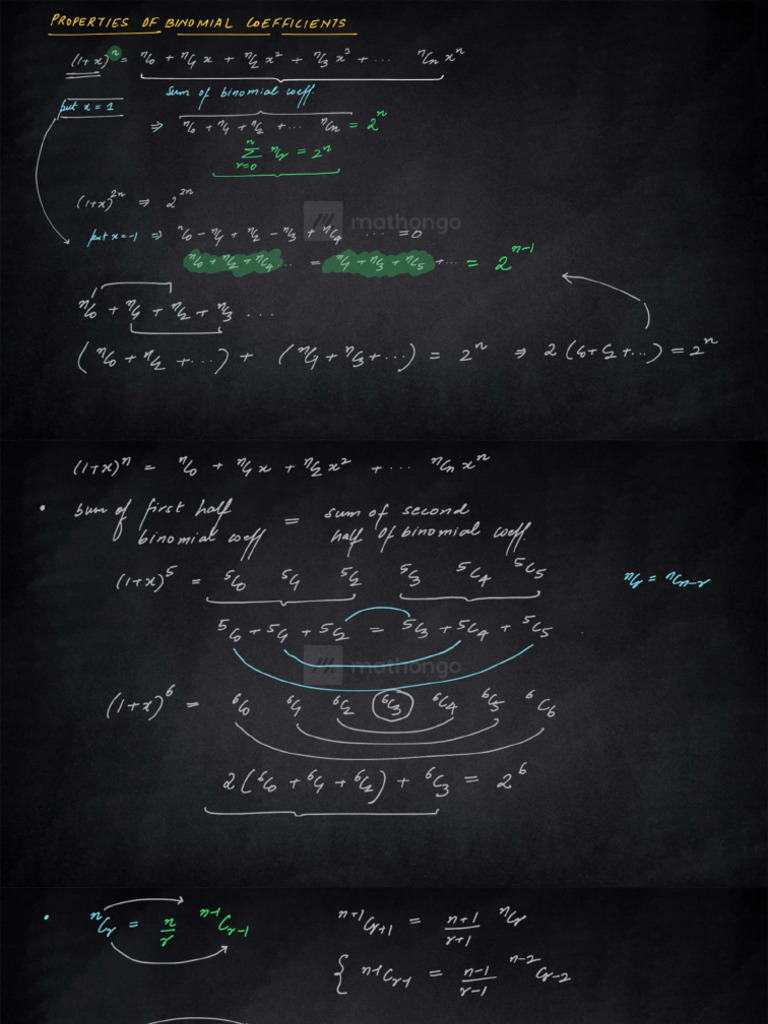 PROPERTIES OF BINOMIAL COEFFICIENTS
(1+x)ⁿ = ⁿC₀ + ⁿC₁ x + ⁿC₂ x² + ⁿC₃ x³ + ... ⁿCₙ xⁿ
put x = 1
sum of binomial coeff.
⇒ ⁿC₀ + ⁿC₁ + ⁿC₂ + ... ⁿCₙ = 2ⁿ
n ∑ r=0 ⁿCᵣ = 2ⁿ
(1+x)²ⁿ ⇒ 2²ⁿ
mathongo
put x = -1 ⇒ ⁿC₀ - ⁿC₁ + ⁿC₂ - ⁿC₃ + ⁿC₄ ... = 0
ⁿC₀ + ⁿC₂ + ⁿC₄ ... = ⁿC₁ + ⁿC₃ + ⁿC₅ + ... = 2ⁿ⁻¹
ⁿC₀ + ⁿC₁ + ⁿC₂ + ⁿC₃ ...
(ⁿC₀ + ⁿC₂ + ...) + (ⁿC₁ + ⁿC₃ + ...) = 2ⁿ ⇒ 2(C₀ + C₂ + ...) = 2ⁿ
(1+x)ⁿ = ⁿC₀ + ⁿC₁ x + ⁿC₂ x² + ... ⁿCₙ xⁿ
• sum of first half binomial coeff = sum of second half of binomial coeff.
(1+x)⁵ = ⁵C₀ ⁵C₁ ⁵C₂ ⁵C₃ ⁵C₄ ⁵C₅
ⁿCᵣ = ⁿCₙ₋ᵣ
⁵C₀ + ⁵C₁ + ⁵C₂ = ⁵C₃ + ⁵C₄ + ⁵C₅
mathongo
(1+x)⁶ = ⁶C₀ ⁶C₁ ⁶C₂ ⁶C₃ ⁶C₄ ⁶C₅ ⁶C₆
2(⁶C₀ + ⁶C₁ + ⁶C₂) + ⁶C₃ = 2⁶
• ⁿCᵣ = n/r ⁿ⁻¹Cᵣ₋₁
ⁿ⁺¹Cᵣ₊₁ = n+1/r+1 ⁿCᵣ
{ ⁿ⁻¹Cᵣ₋₁ = n-1/r-1 ⁿ⁻²Cᵣ₋₂